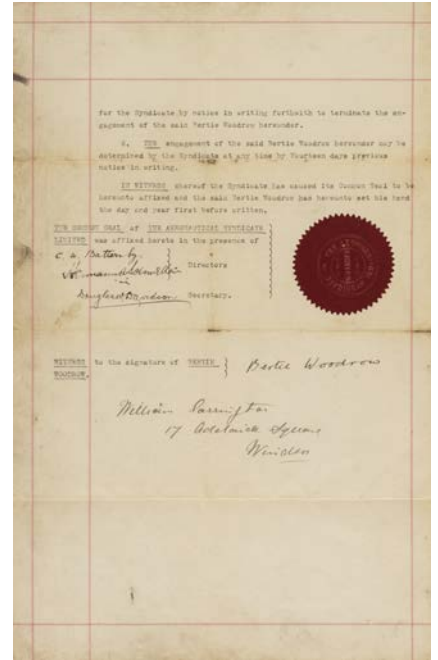 for the Syndicate by notice in writing forthwith to terminate the en-
gagement of the said Bertie Woodrow hereunder.
6. THE engagement of the said Bertie Woodrow hereunder may be
determined by the Syndicate at any time by Fourteen days previous
notice in writing.
IN WITNESS whereof the Syndicate has caused its Common Seal to be
hereunto affixed and the said Bertie Woodrow has hereunto set his hand
the day and year first before written.
THE COMMON SEAL of THE AERONAUTICAL SYNDICATE
LIMITED was affixed hereto in the presence of
C. A.
Directors
Secretary.
WITNESS to the signature of BERTIE
WOODROW.
Bertie Woodrow
William
17 Adelaide Square
Windsor